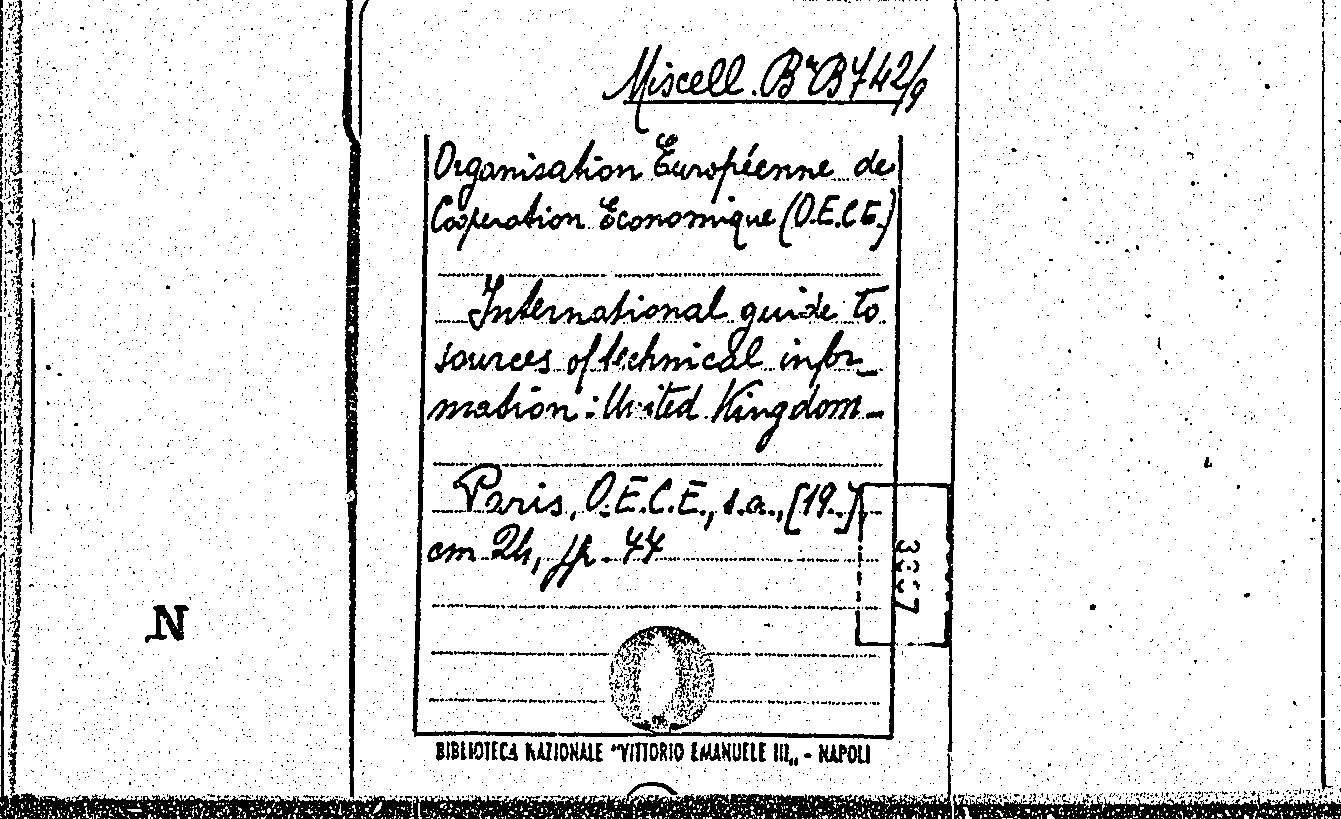 Miscell. Bª B 742/9
Organisation Européenne de
Coóperation Economique (O.E.C.E.)
International guide to
sources of technical infor_
mation: United Kingdom_
Paris, O.E.C.E., s.a., [19..],
cm 24, pp. 44
3367
N
BIBLIOTECA NAZIONALE "VITTORIO EMANUELE III„ - NAPOLI